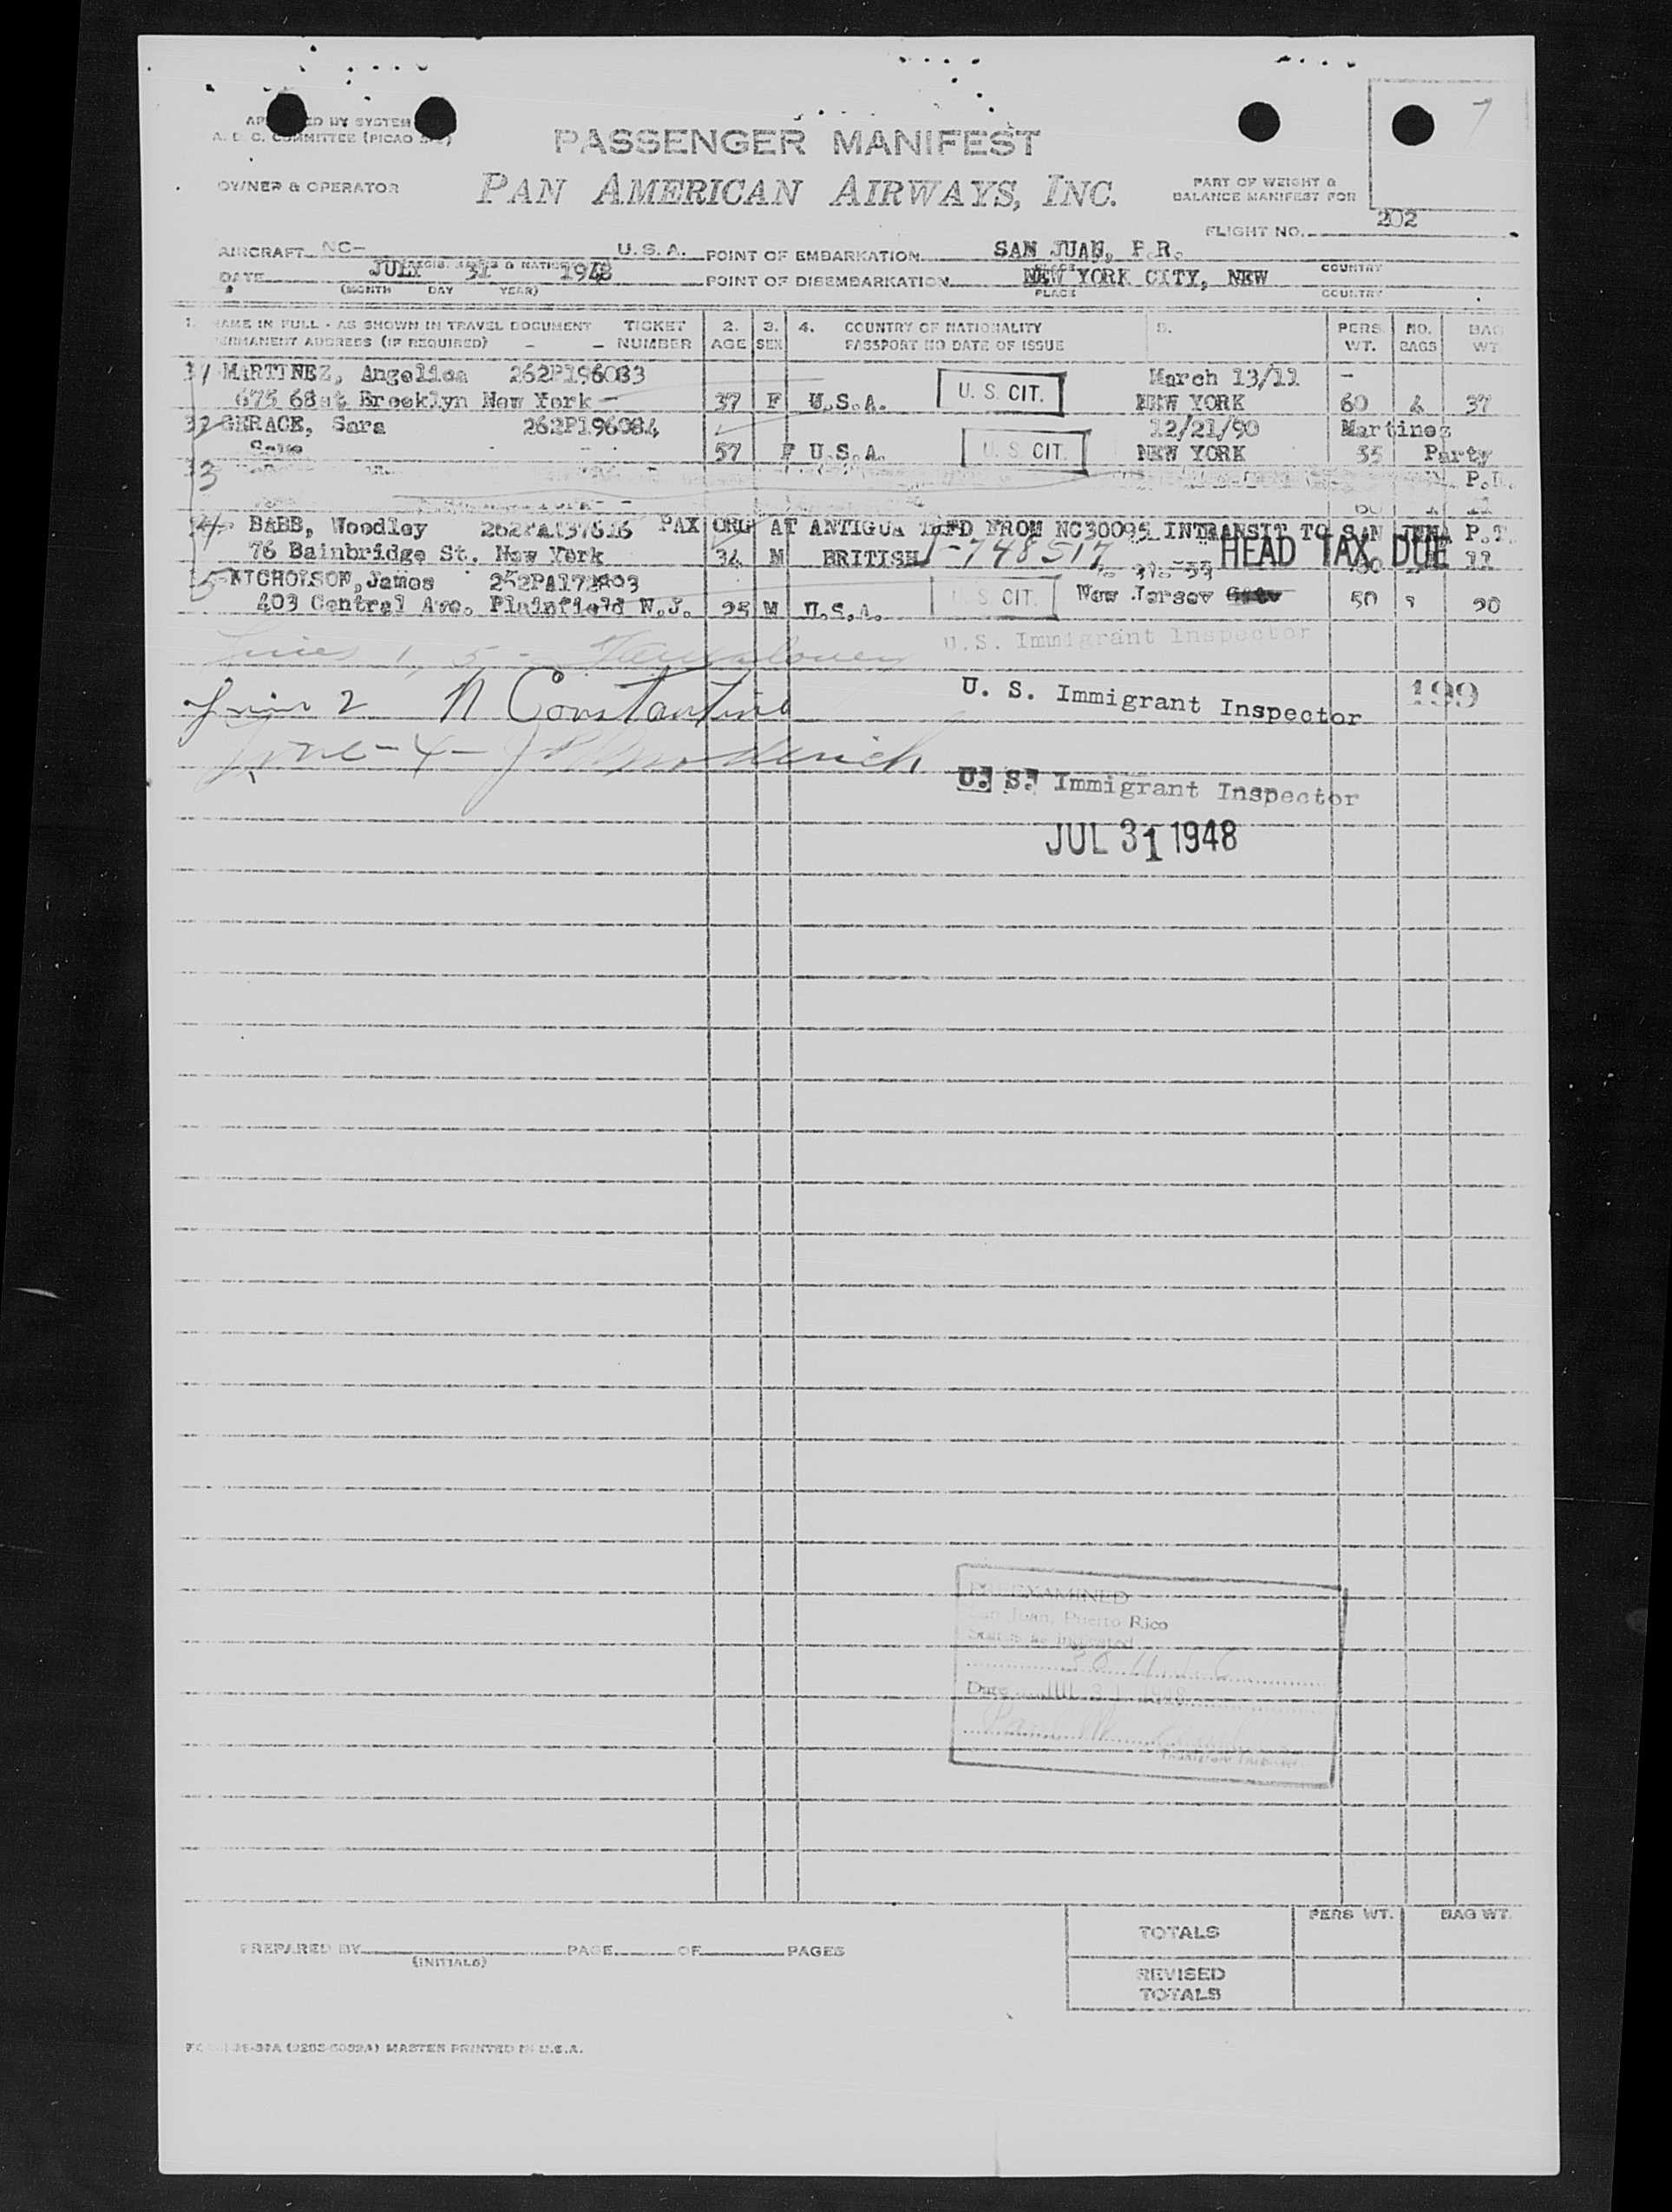 7
PASSENGER MANIFEST
A. D. C. COMMITTEE (PICAO
OWNER & OPERATOR
PAN AMERICAN AIRWAYS, INC.
PART OF WEIGHT &
BALANCE MANIFEST FOR
FLIGHT NO. 202
AIRCRAFT NC- U.S.A. POINT OF EMBARKATION SAN JUAN, P.R.
DATE JULY 31 1948 POINT OF DISEMBARKATION NEW YORK CITY, NEW COUNTRY
(MONTH DAY YEAR) PLACE COUNTRY
1. NAME IN FULL - AS SHOWN IN TRAVEL DOCUMENT TICKET 2. 3. 4. COUNTRY OF NATIONALITY 5. PERS. NO. BAG
PERMANENT ADDRESS (IF REQUIRED) - - NUMBER AGE SEX PASSPORT NO DATE OF ISSUE WT. BAGS WT
1 MARTINEZ, Angelica 262P196083 March 13/11 -
675 68st Brooklyn New York 37 F U.S.A. U. S. CIT. NEW YORK 60 4 37
2 GERACE, Sara 262P196084 12/21/90 Martinez
Same 57 F U.S.A. U. S. CIT. NEW YORK 55 Party
3 P.R.
4 BABB, Woodley PAX ORG AT ANTIGUA FROM NC30095 INTRANSIT TO SAN P.R.
76 Bainbridge St. New York 34 M BRITISH -748517 HEAD TAX DUE 11
5 NICHOLSON, James
403 Central Ave. Plainfield N.J. 25 M U.S.A. U. S. CIT. New Jersey 50
Lines 1, 5 - U.S. Immigrant Inspector
Line 2 N Constantine U. S. Immigrant Inspector 199
Line - 4 - U. S. Immigrant Inspector
JUL 31 1948
EXAMINED
San Juan, Puerto Rico
Status as indicated
Date JUL 31 1948
TOTALS PERS WT. BAG WT.
PREPARED BY PAGE OF PAGES
(INITIALS)
REVISED
TOTALS
MASTER PRINTED IN U.S.A.